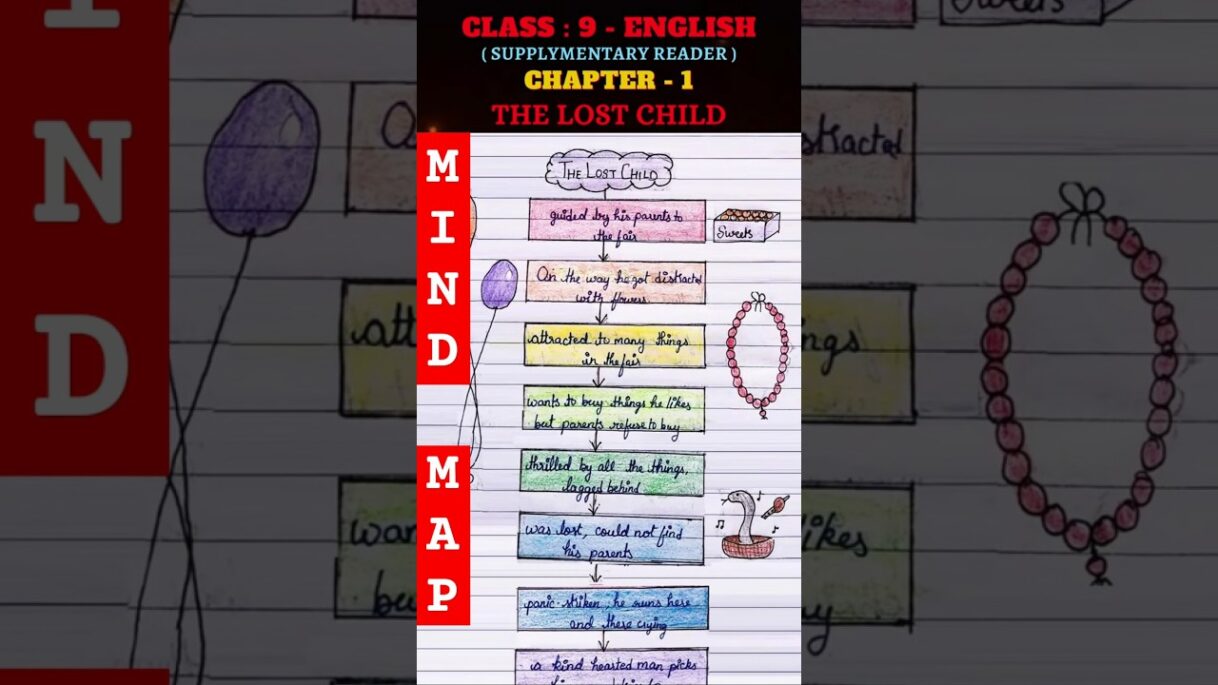 CLASS : 9 - ENGLISH
( SUPPLYMENTARY READER )
CHAPTER - 1
THE LOST CHILD
MIND
MAP
THE LOST CHILD
guided by his parents to
the fair
Sweets
On the way he got distracted
with flowers
attracted to many things
in the fair
wants to buy things he likes
but parents refuse to buy
thrilled by all the things,
lagged behind
was lost, could not find
his parents
panic-striken, he runs here
and there crying
a kind hearted man picks